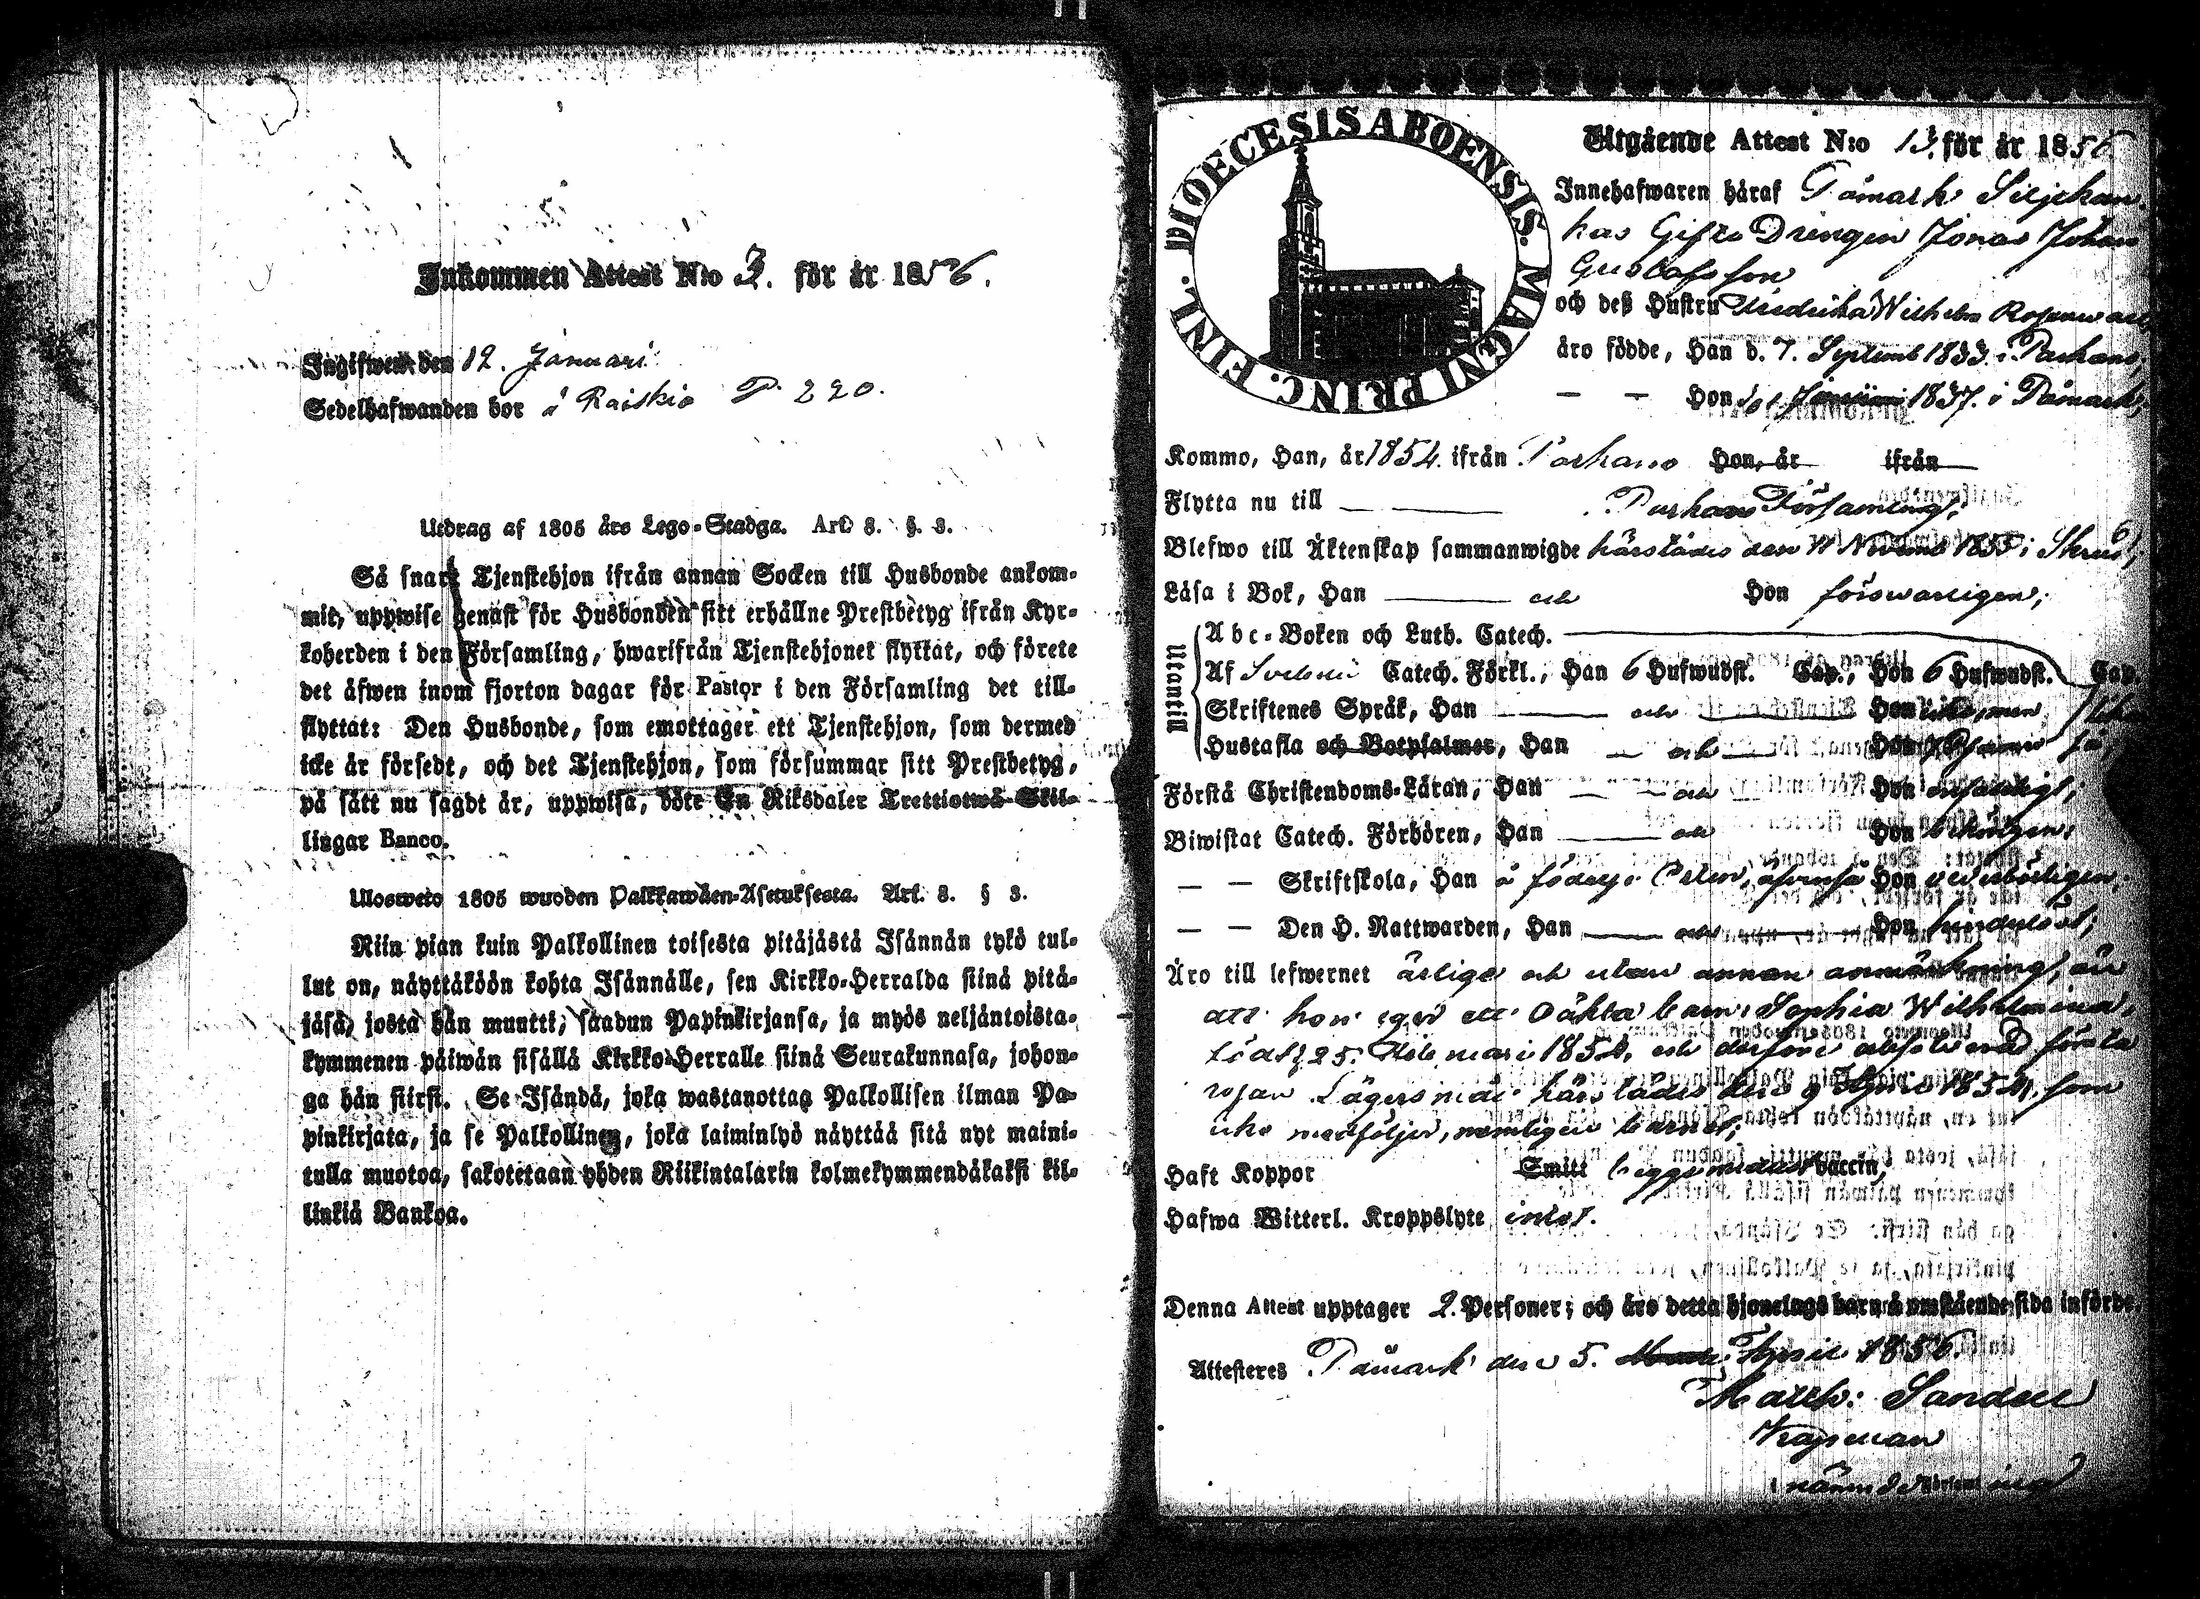 Inkommen Attest N:o 3. för år 1856.
Ingifwen den 12. Januari
Sedelhafwanden bor å Raiskio P. 220.
Utdrag af 1805 års Lego-Stadga. Art. 8. §. 3.
Så snart Tjenstehjon ifrån annan Socken till Husbonde ankom-
mit, uppwise genast för Husbonden sitt erhållne Prestbetyg ifrån Kyr-
koherden i den Församling, hwarifrån Tjenstehjonet flyttat, och förete
det äfwen inom fjorton dagar för Pastor i den Församling det till-
flyttat: Den Husbonde, som emottager ett Tjenstehjon, som dermed
icke är försedt, och det Tjenstehjon, som försummar sitt Prestbetyg,
på sätt nu sagdt är, uppwisa, böte En Riksdaler Trettiotwå Skil-
lingar Banco.
Ulosweto 1805 wuoden Palkkawäen-Asetuksesta. Art. 8. § 3.
Niin pian kuin Palkollinen toisesta pitäjästä Isännän tykö tul-
lut on, näyttäköön kohta Isännälle, sen Kirkko-Herralda siinä pitä-
jäsä, josta hän muutti, saadun Papinkirjansa, ja myös neljäntoista-
kymmenen päiwän sisällä Kirkko-Herralle siinä Seurakunnasa, johon-
ga hän siirsi. Se Isändä, joka wastanottaa Palkollisen ilman Pa-
pinkirjata, ja se Palkollinen, joka laiminlyö näyttää sitä nyt maini-
tulla muotoa, sakotetaan yhden Riikintalarin kolmekymmendäkaksi kil-
linkiä Bankoa.
DIOECESIS ABOENSIS. MAGNI PRINC. FINL.
Utgående Attest N:o 13. för år 1856
Innehafwaren häraf Påmark Siljekan
kas Gifte Drengen Jonas Johan
Gustafsson
och deß Hustru Fredrika Wilhelm Rosenwall,
äro födde, Han d. 7. Septemb 1833. i Parkano,
— — Hon Januari 1837. i Påmark,
Kommo, Han, år 1854. ifrån Parkano Hon, år ifrån
Flytta nu till — — Parkano Församling;
Blefwo till Äktenskap sammanwigde härstädes den 11 Novemb 1855 i
Läsa i Bok, Han — och Hon förswarligen;
Utantill
Abc-Boken och Luth. Catech.
Af Svebelii Catech. Förkl., Han 6 Hufwudst. Cap., Hon 6 Hufwudst. Cap.
Skriftenes Språk, Han — och — Hon men
Hustafla och Botpsalmer, Han — och — Hon
Förstå Christendoms-Läran, Han — och — Hon enfaldigt;
Biwistat Catech. Förhören, Han — och Hon behörigen;
— — Skriftskola, Han å födelse Orten, Hon wederbörligen;
— — Den H. Nattwarden, Han — och — Hon
Äro till lefwernet ärlige och utan annan anmärkning, än
att hon eger ett Oäkta barn: Sophia Wilhelmina,
född 25. Febr 1854, och derföre absolverad första
resan Lägersmål härstädes den 9 April 1854, som
icke medföljer, nemligen barnet;
Haft Koppor Smitt begge medelst vaccin;
Hafwa Witterl. Kroppslyte intet.
Denna Attest upptager 2. Personer; och äro detta hjonelags barn å omstående sida införde
Attesteres Påmark den 5. April 1856.
Matth: Sandell
Kapellan
i nämnde